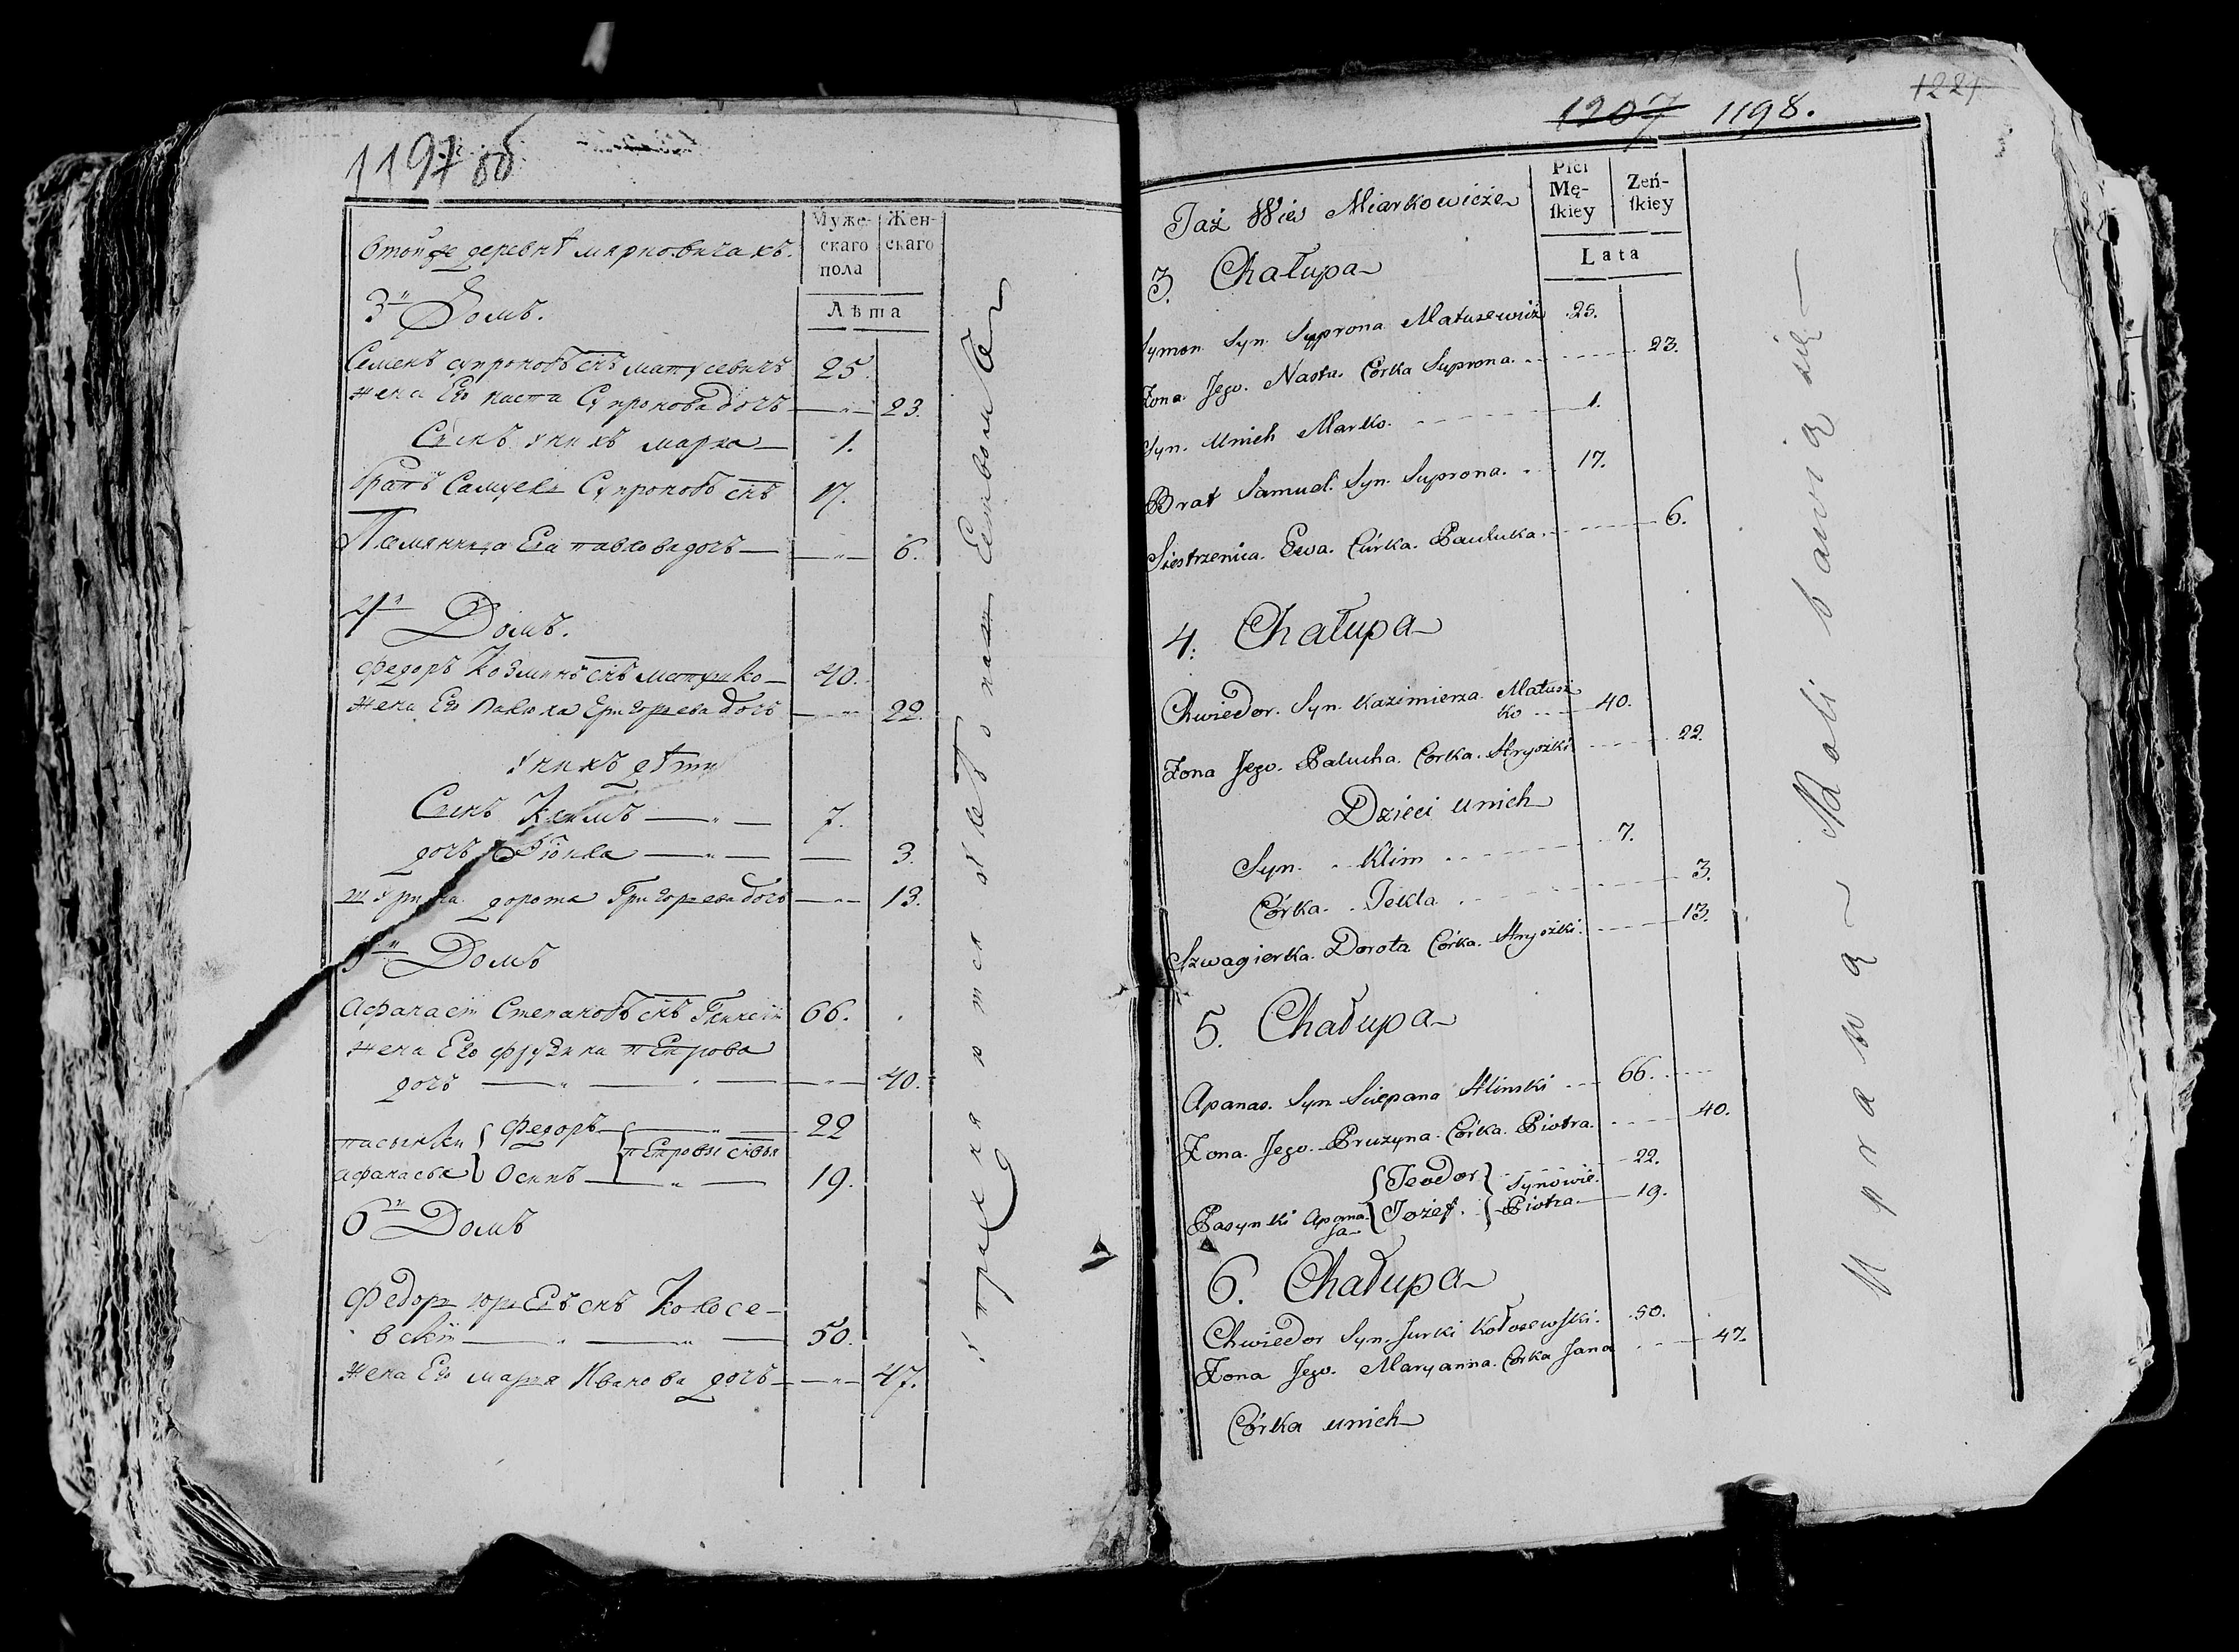 1197 об
Втойже деревнѣ мярковичахъ.
Мужескаго пола
Женскаго
Лѣта
3й Домъ.
Семенъ супроновъ снъ матусевичъ 25
жена Его наста Супронова дочъ 23.
Сынъ уних марка 1.
братъ Самуель Супроновъ снъ 17.
Племянница Ева павлова дочъ 6.
4й Домъ.
Федоръ Козминъ снъ матушко 40.
жена Его палюха Григорьева дочъ 22.
унихъ дѣти
Сынъ Климъ 7.
дочъ Тіокла 3.
шурина дорота Григорьева дочъ 13.
5й Домъ
Афанасій Степановъ снъ Глинскій 66.
жена Его фрузына пЕтрова
дочъ 40.
пасынки Федоръ 22
пЕтровы сновья
афанасья Осипъ 19.
6й Домъ
Федоръ юрьЕвъ снъ Колосе-
вскій 50.
жена Его марья Иванова дочъ 47.
упражняются хлебопашЕством
1207 1198.
1221
Taż Wieś Miarkowicze
Płci Mę-
skiey
Zeń-
skiey
Lata
3. Chałupa
Symon Syn Supprona Matusewicz 25.
Zona Jego Nasta Corka Suprona. 23.
Syn Unich Marko. 1.
Brat Samuel Syn Suprona. 17.
Siestrzenica Ewa Córka Pauluka. 6.
4. Chałupa
Chwiedor Syn Kazimierza Matusz
ko 40.
Zona Jego Palucha Corka Hryożki 22.
Dzieci unich
Syn Klim 7.
Córka Tekla 3.
Szwagierka Dorota Córka Hryożki 13.
5. Chałupa
Apanas Syn Sciepana Hlinski 66.
Zona Jego Pruzyna Córka Piotra. 40.
Teodor Synowie 22.
Pasynki Apana
sa Jozef. Piotra 19.
6. Chałupa
Chwiedor Syn Jurki Kołosewski. 50.
Zona Jego Maryanna Corka Jana 47.
Córka unich
Uprawą Roli bawią się